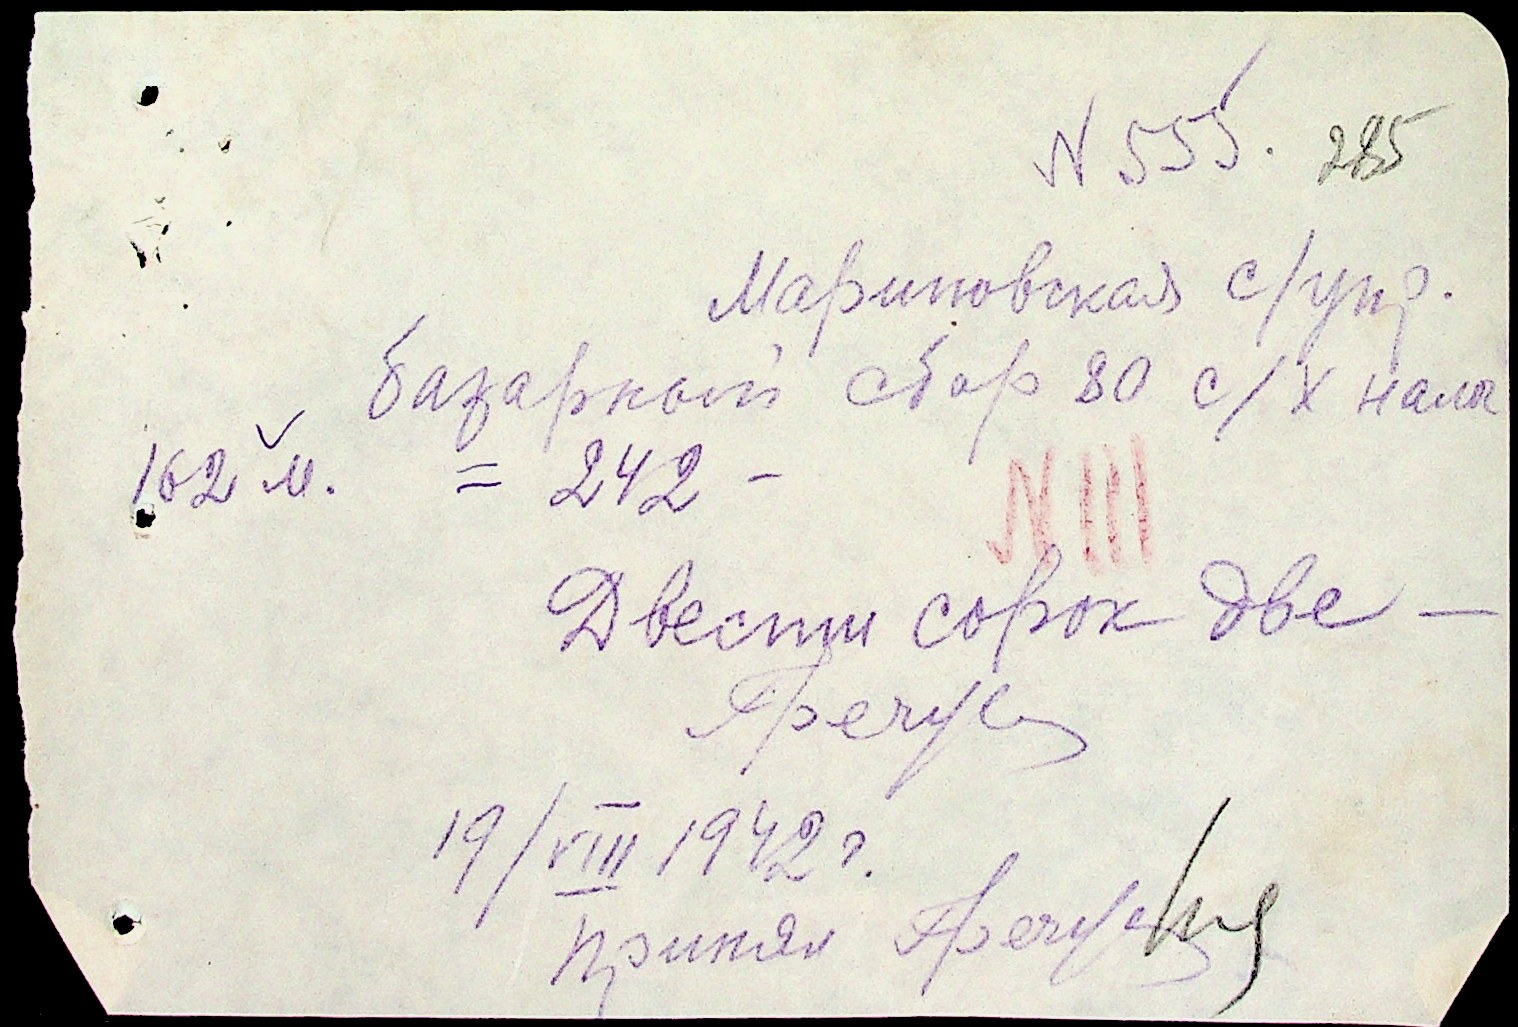 N 555. 285
Мариновская с/упр.
базарный сбор 80 с/х нало
162 м. = 242 -
N III
Двести сорок две —
19/VIII 1942 г.
Принял